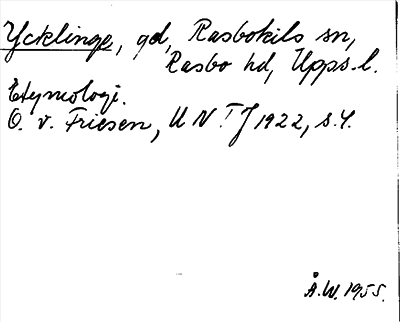 Ycklinge, gd, Rasbokils sn,
Rasbo hd, Upps. l.
Etymologi.
O. v. Friesen, UNTJ 1922, s. 4.
Å.W. 1955.